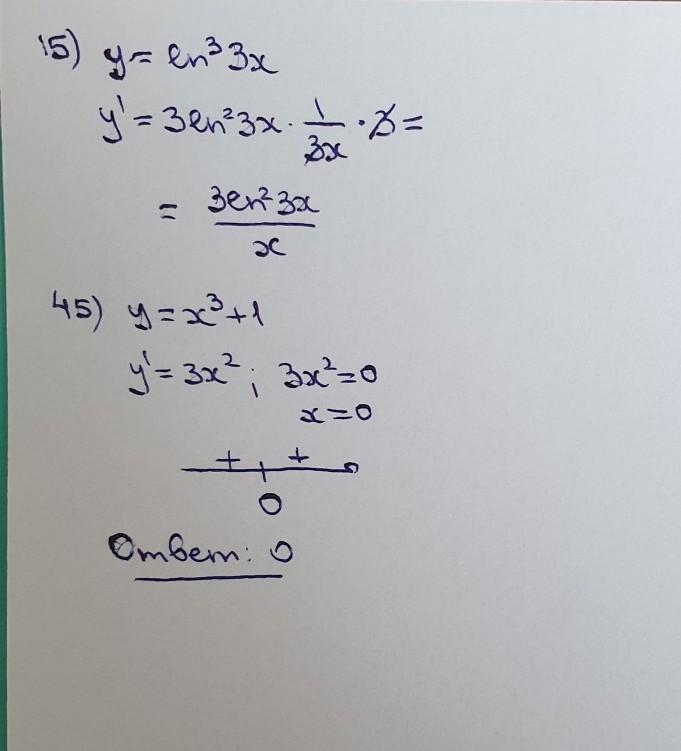 15) y = ln³ 3x
y' = 3ln² 3x · 1/3x · 3 =
= 3ln² 3x / x
45) y = x³ + 1
y' = 3x² ; 3x² = 0
x = 0
+ +
0
Ответ: 0